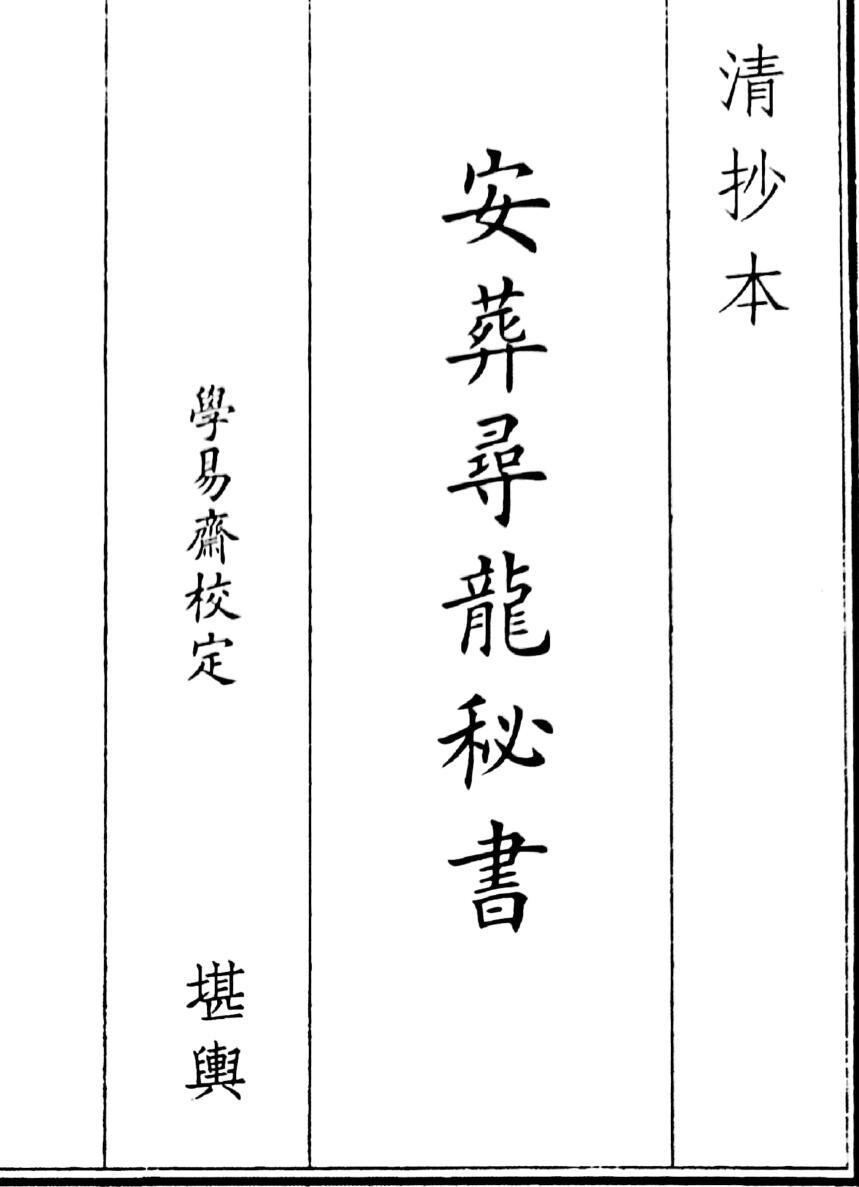 清抄本
安葬尋龍秘書
學易齋校定
堪輿